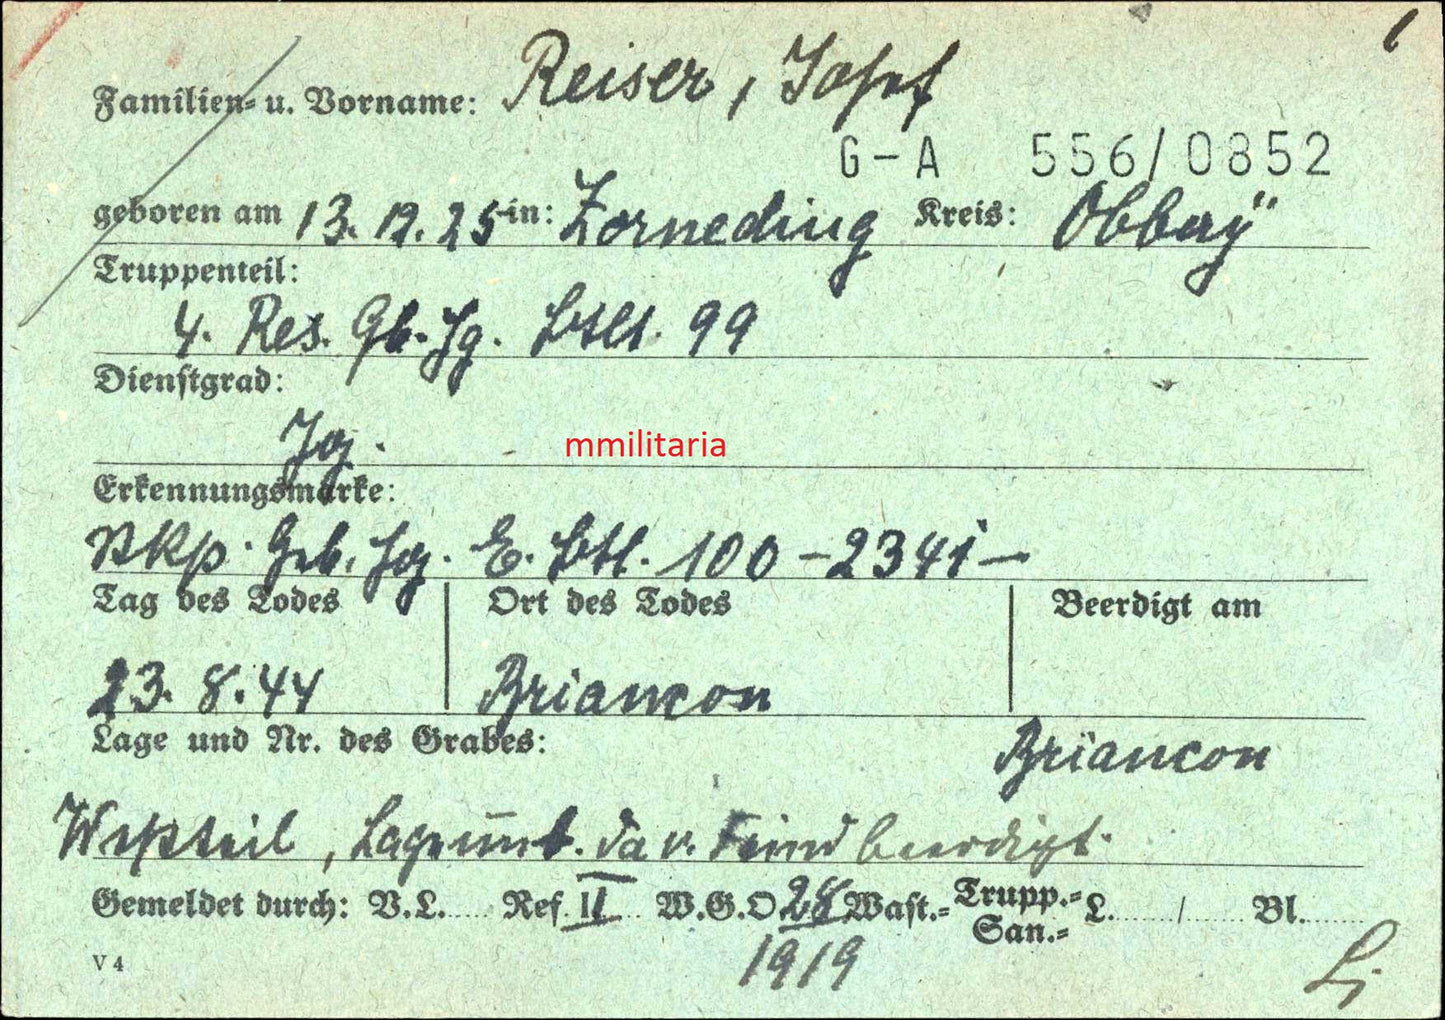 Familien- u. Vorname: Reiser, Josef
G-A 556/0852
geboren am 13.12.25 in: Zorneding Kreis: Obbay
Truppenteil:
4. Res. Gb. Jg. Btl. 99
Dienstgrad:
Jg.
mmilitaria
Erkennungsmarke:
Geb. Jg. E. Btl. 100 -2341-
Tag des Todes Ort des Todes Beerdigt am
23. 8. 44 Briancon
Lage und Nr. des Grabes: Briancon
Westteil, Lage unb. da v. Feind beerdigt.
Gemeldet durch: V.L..... Ref. II W.G.O 28 Wast.- Trupp.- San.- L......./....... Bl.......
1919
V 4